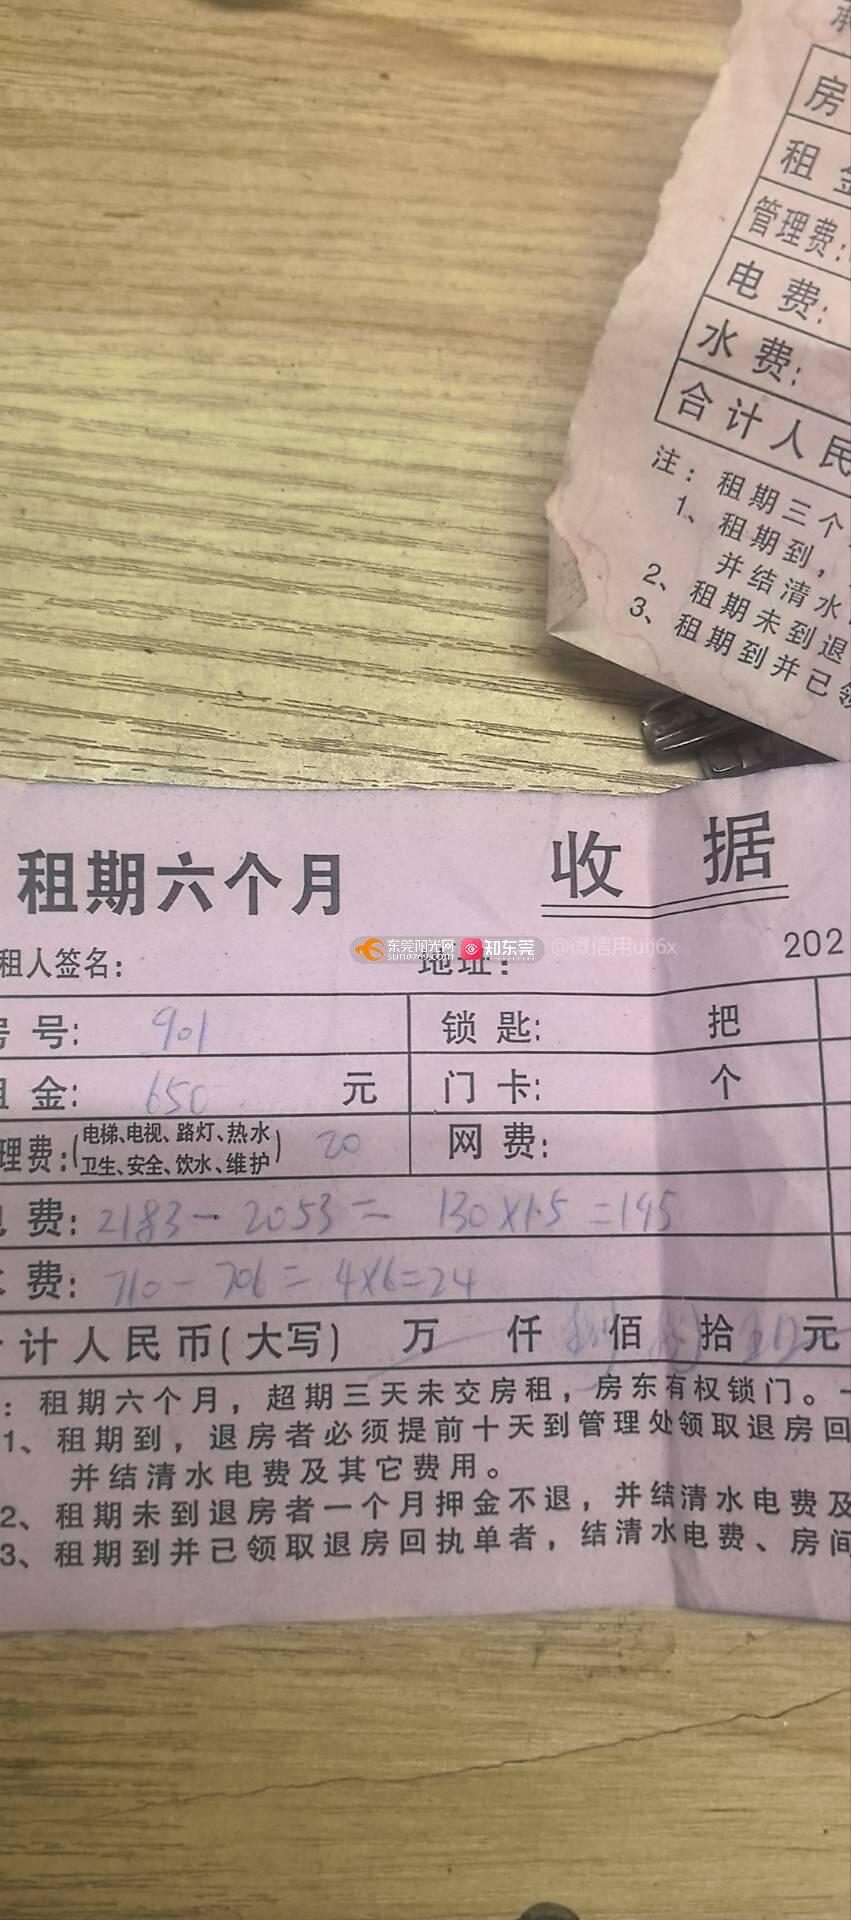 房
租金
管理费:
电费:
水费:
合计人民
注：租期三个
1、租期到，
并结清水
2、租期未到退
3、租期到并已领
租期六个月 收据
东莞阳光网 sun0769.com 知东莞 @微信用uij6x
租人签名: 地址: 202
号: 901 锁匙: 把
金: 650 元 门卡: 个
理费:(电梯、电视、路灯、热水
卫生、安全、饮水、维护) 20 网费:
费: 2183-2053= 130×1.5=195
费: 710-706=4×6=24
计人民币(大写) 万 仟 捌佰 拾 元
：租期六个月，超期三天未交房租，房东有权锁门。
1、租期到，退房者必须提前十天到管理处领取退房回
并结清水电费及其它费用。
2、租期未到退房者一个月押金不退，并结清水电费及
3、租期到并已领取退房回执单者，结清水电费、房间